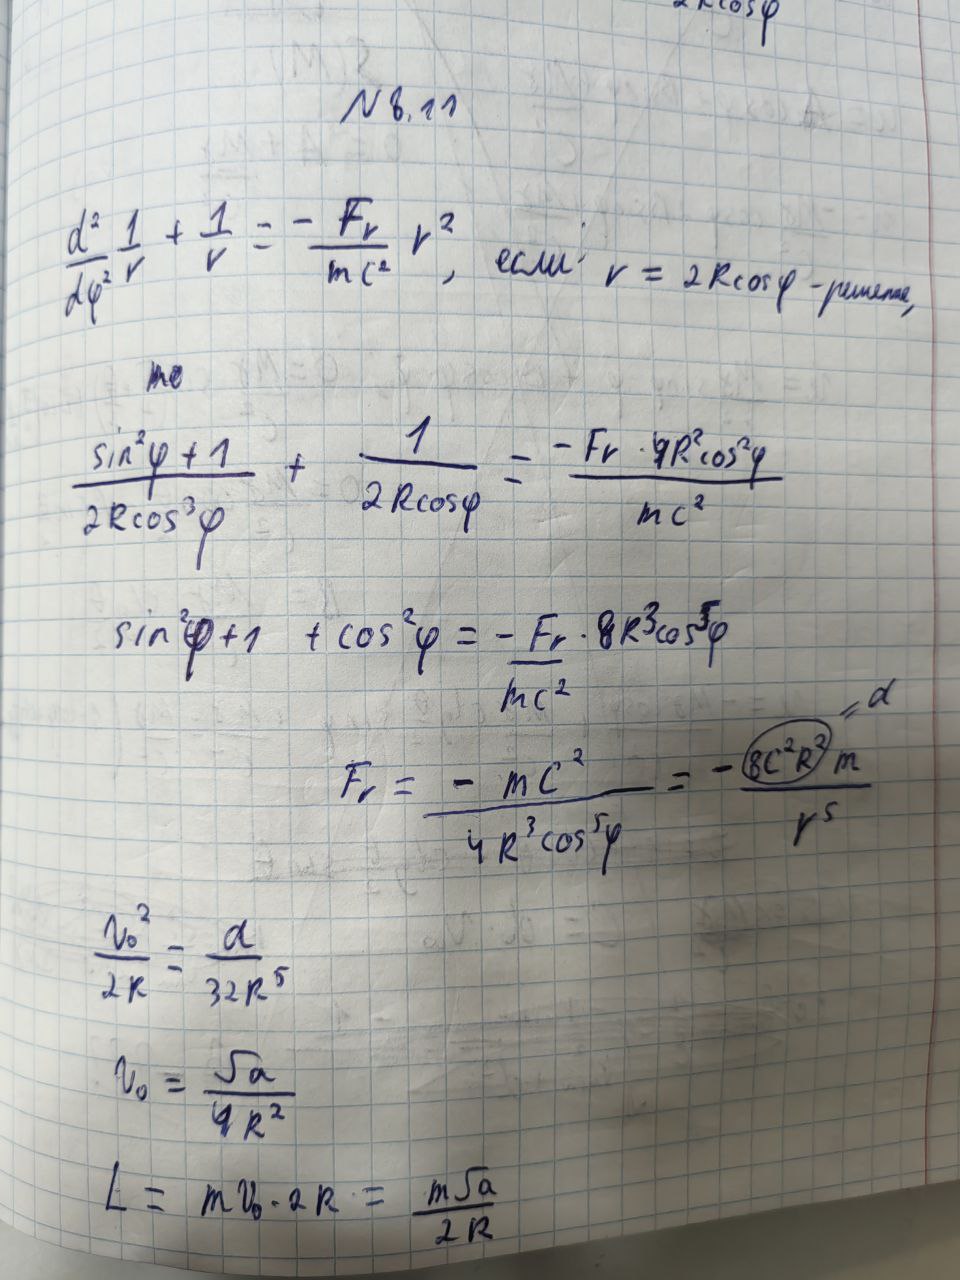 2Rcosφ
N 8.11
d²/dφ² 1/r + 1/r = - Fr/mc² r², если r = 2Rcosφ - решение,
то
(sin²φ + 1)/(2Rcos³φ) + 1/(2Rcosφ) = (-Fr · 4R²cos²φ)/(mc²)
sin²φ + 1 + cos²φ = - Fr/mc² · 8R³cos⁵φ
Fr = - mC²/(4R³cos⁵φ) = - 8C²R²m/r⁵ = α
v₀²/2R = α/32R⁵
v₀ = √α/4R²
L = mv₀ · 2R = m√α/2R